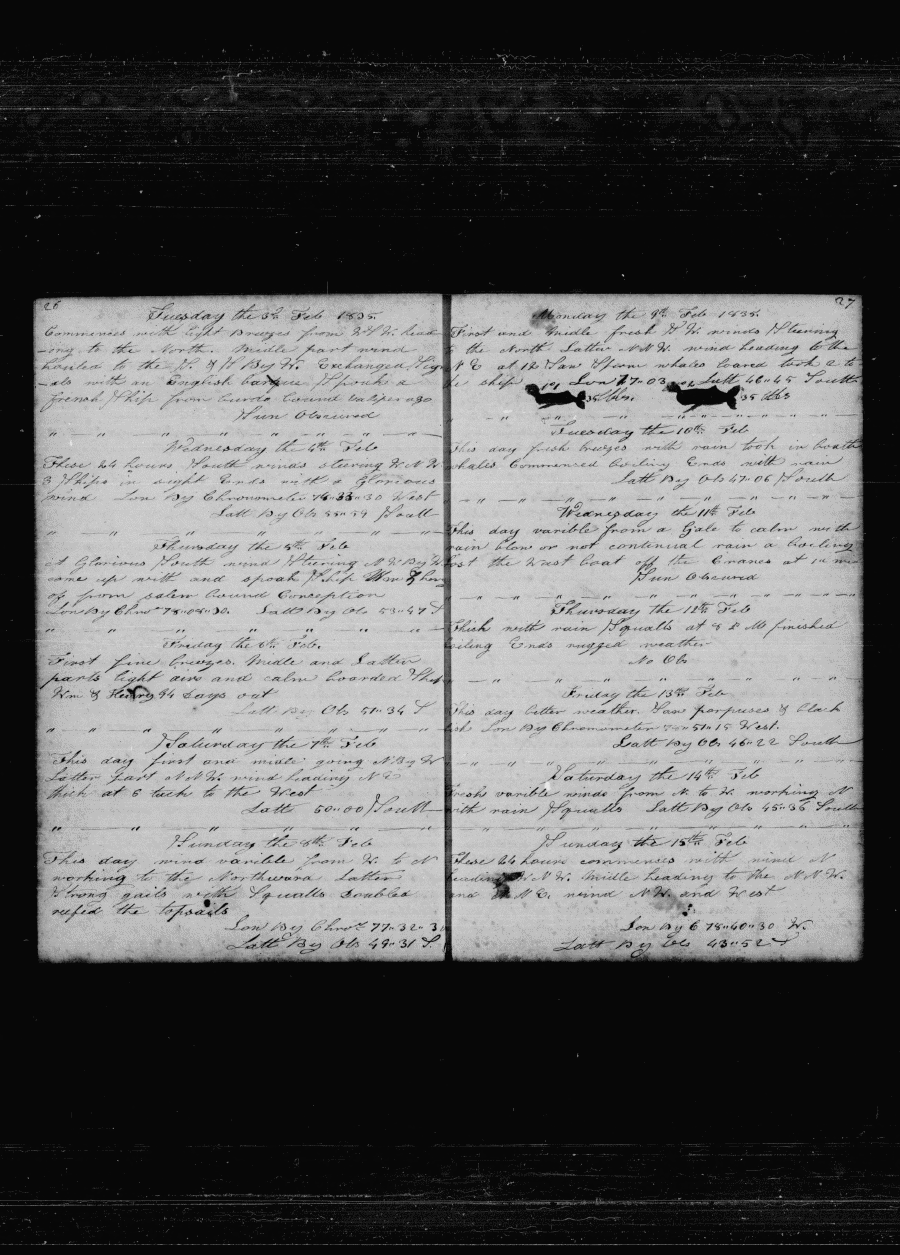 26
Tuesday the 3d Feb 1835
Commences with light Breezes from W N W. head-
-ing to the North. Middle part wind
hauled to the S. & S By W. Exchanged Sig
-als with an English barque Spoake a
french Ship from bound
Sun Obscured
Wednesday the 4th Feb
These 24 hours South winds steering W. N. W
3 Ships in sight Ends with a Glorious
wind Lon By Chronometer 30 West
Latt By Obs 55"59 South
Thursday the 5th Feb
at Glorious South wind Stearing N. W. By W
came up with and spoak Ship Wm &
of from salem bound Conception
Lon By Chrot 78"08"30 Latt By Obs 53"47 S
Friday the 6th Feb.
First fine breezes. Midle and Latter
parts light airs and calm boarded Ship
Wm & Henry 94 days out
Latt By Obs 51"34 S
Saturday the 7th Feb
This day first and midle going N. By W
Latter part N. N. W. wind heading N. E
thick at 6 tack to the West
Latt 50"00 South
Sunday the 8th Feb
This day wind varible from W. to N
working to the Northward Latter
Strong gails with Squalls Doubled
reefed the topsails
Lon By Chrot 77"32"3
Latt By Obs 49"31 S.
27
Monday the 9th Feb 1835
First and Midle fresh S W. winds Steering
the North. Latter N. N. W. wind heading to the
N E at 12 Saw Sperm whales loared took 2 to
he ship Lon 77"03 Latt 46"45 South
35 bbls. 35 bbls
Tuesday the 10th Feb
This day fresh breezes with rain took in boath
whales Commenced boiling Ends with rain
Latt By Obs 47"06 South
Wednesday the 11th Feb
This day varible from a Gale to calm with
rain blow or not continual rain a boiling
lost the Wast boat off the Cranes at
Sun Obscured
Thursday the 12th Feb
Thick with rain Squalls at 8 P M finished
boiling Ends rugged weather
No Obs
Friday the 13th Feb
This day better weather. Saw porpuses & black
fish Lon By Chronometer 51"15 West.
Latt By Obs 46"22 South
Saturday the 14th Feb
Fresh varible winds from N. to W. working N
with rain Squalls Latt By Obs 45"36 South
Sunday the 15th Feb
These 24 hours commences with wind N
heading W. N. W. Midle heading to the N. N. W.
and N. E. wind N W. and West
Lon By C 78"40"30 W.
Latt By Obs 43"52 S